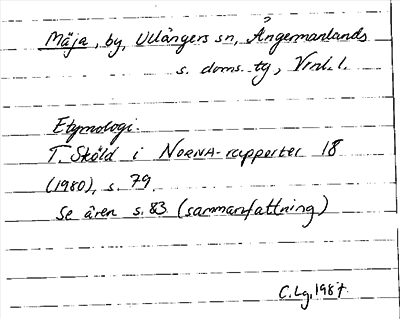 Mäja, by, Ullångers sn, Ångermanlands
s. doms. tg, Vnl. l.
Etymologi:
T. Sköld i NORNA-rapporter 18
(1980), s. 79.
Se även s. 83 (sammanfattning)
C. Lg. 1987